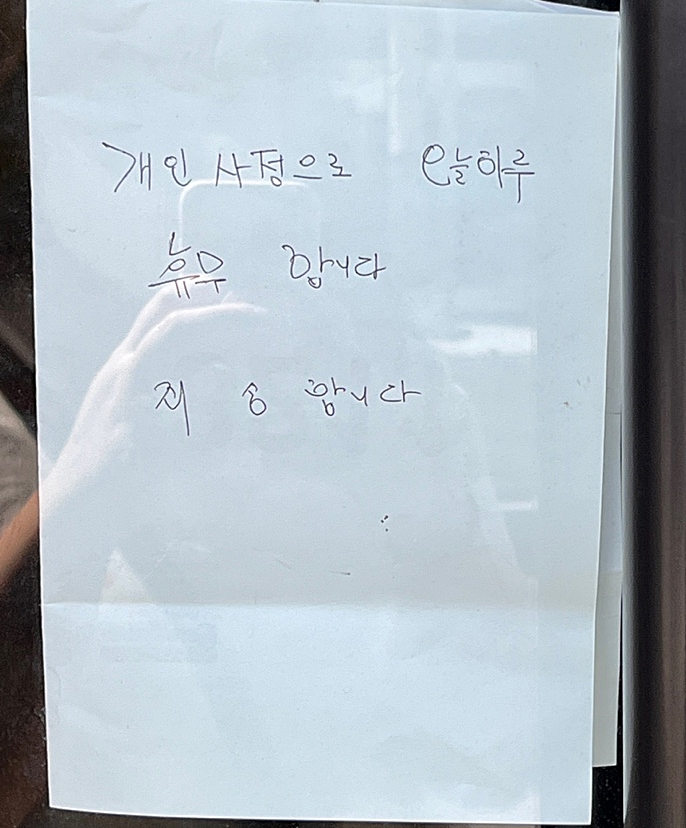 개인 사정으로 오늘하루
휴무 합니다
죄송합니다